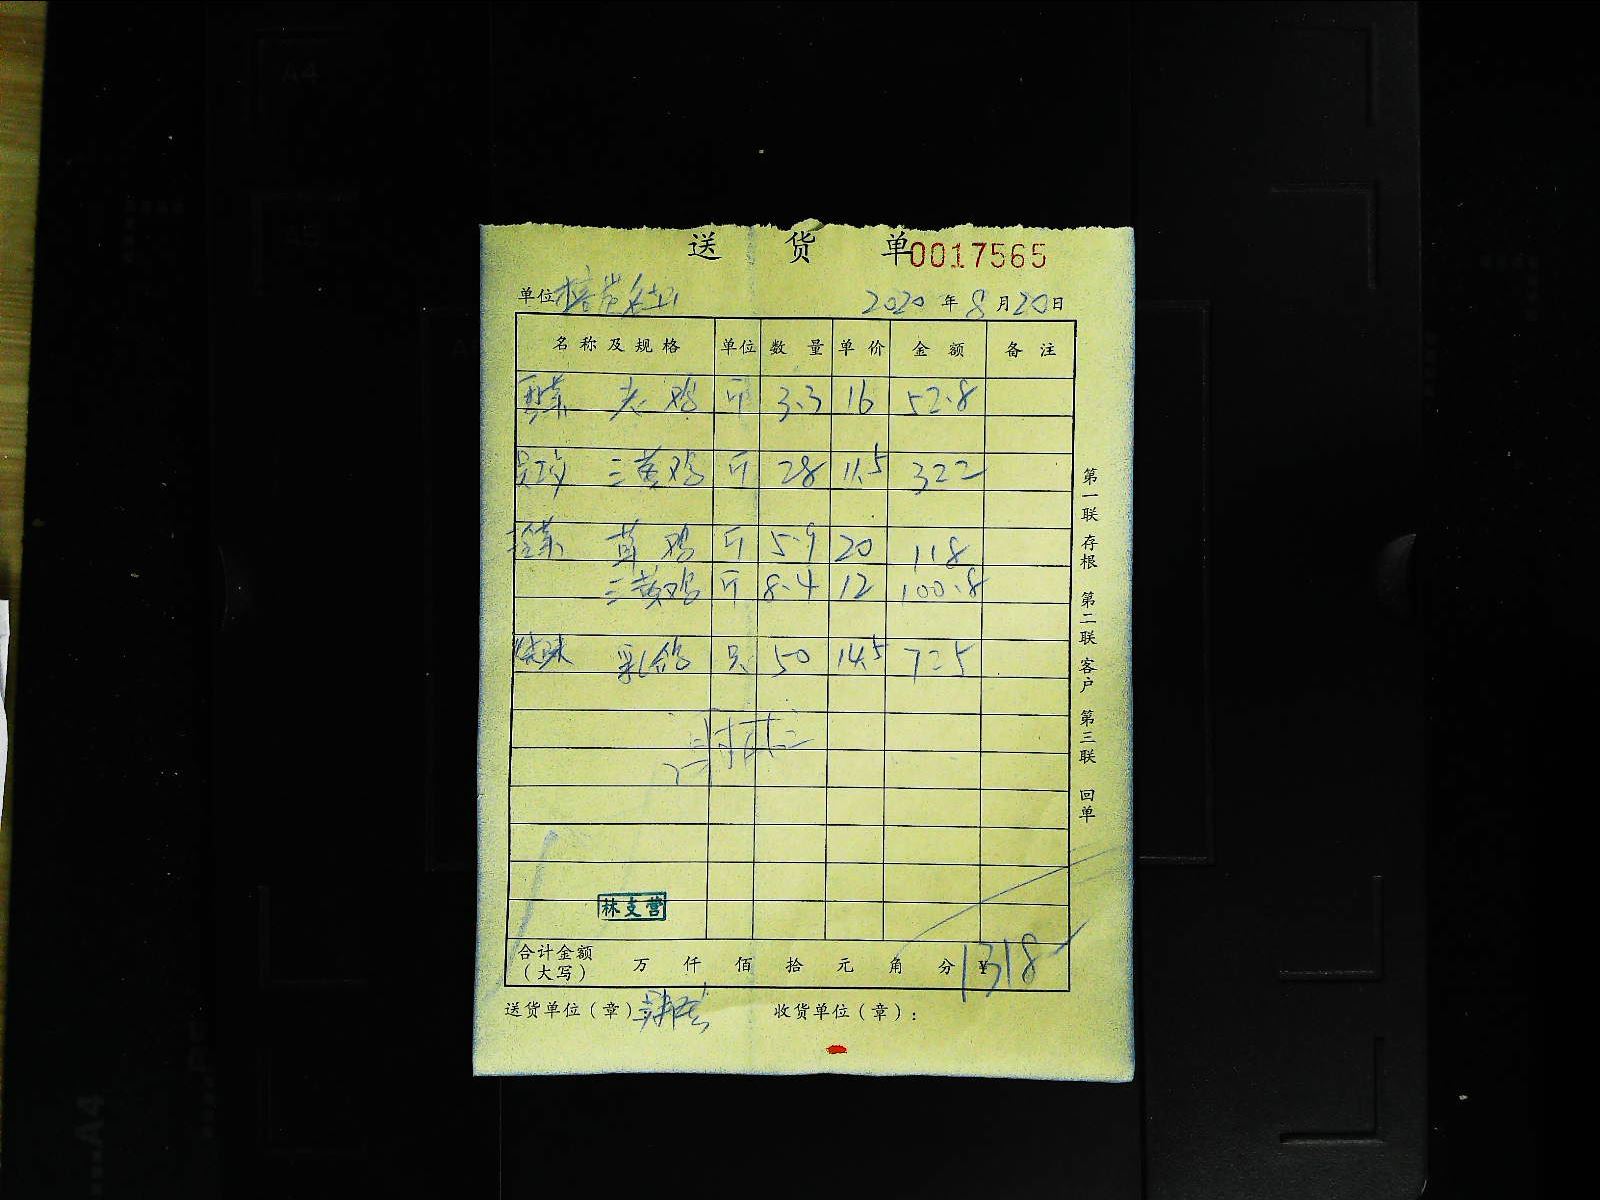 送 货 单 0017565
单位 2020 年 8 月 20 日
名称及规格 单位 数量 单价 金额 备注
老鸡 斤 3.3 16 52.8
三黄鸡 斤 28 11.5 322
鸡 斤 5.9 20 118
三黄鸡 斤 8.4 12 100.8
烧味 乳鸽 只 50 14.5 725
林支营
合计金额
(大写) 万 仟 佰 拾 元 角 分 ¥1318
送货单位(章) 收货单位(章):
第一联 存根 第二联 客户 第三联 回单